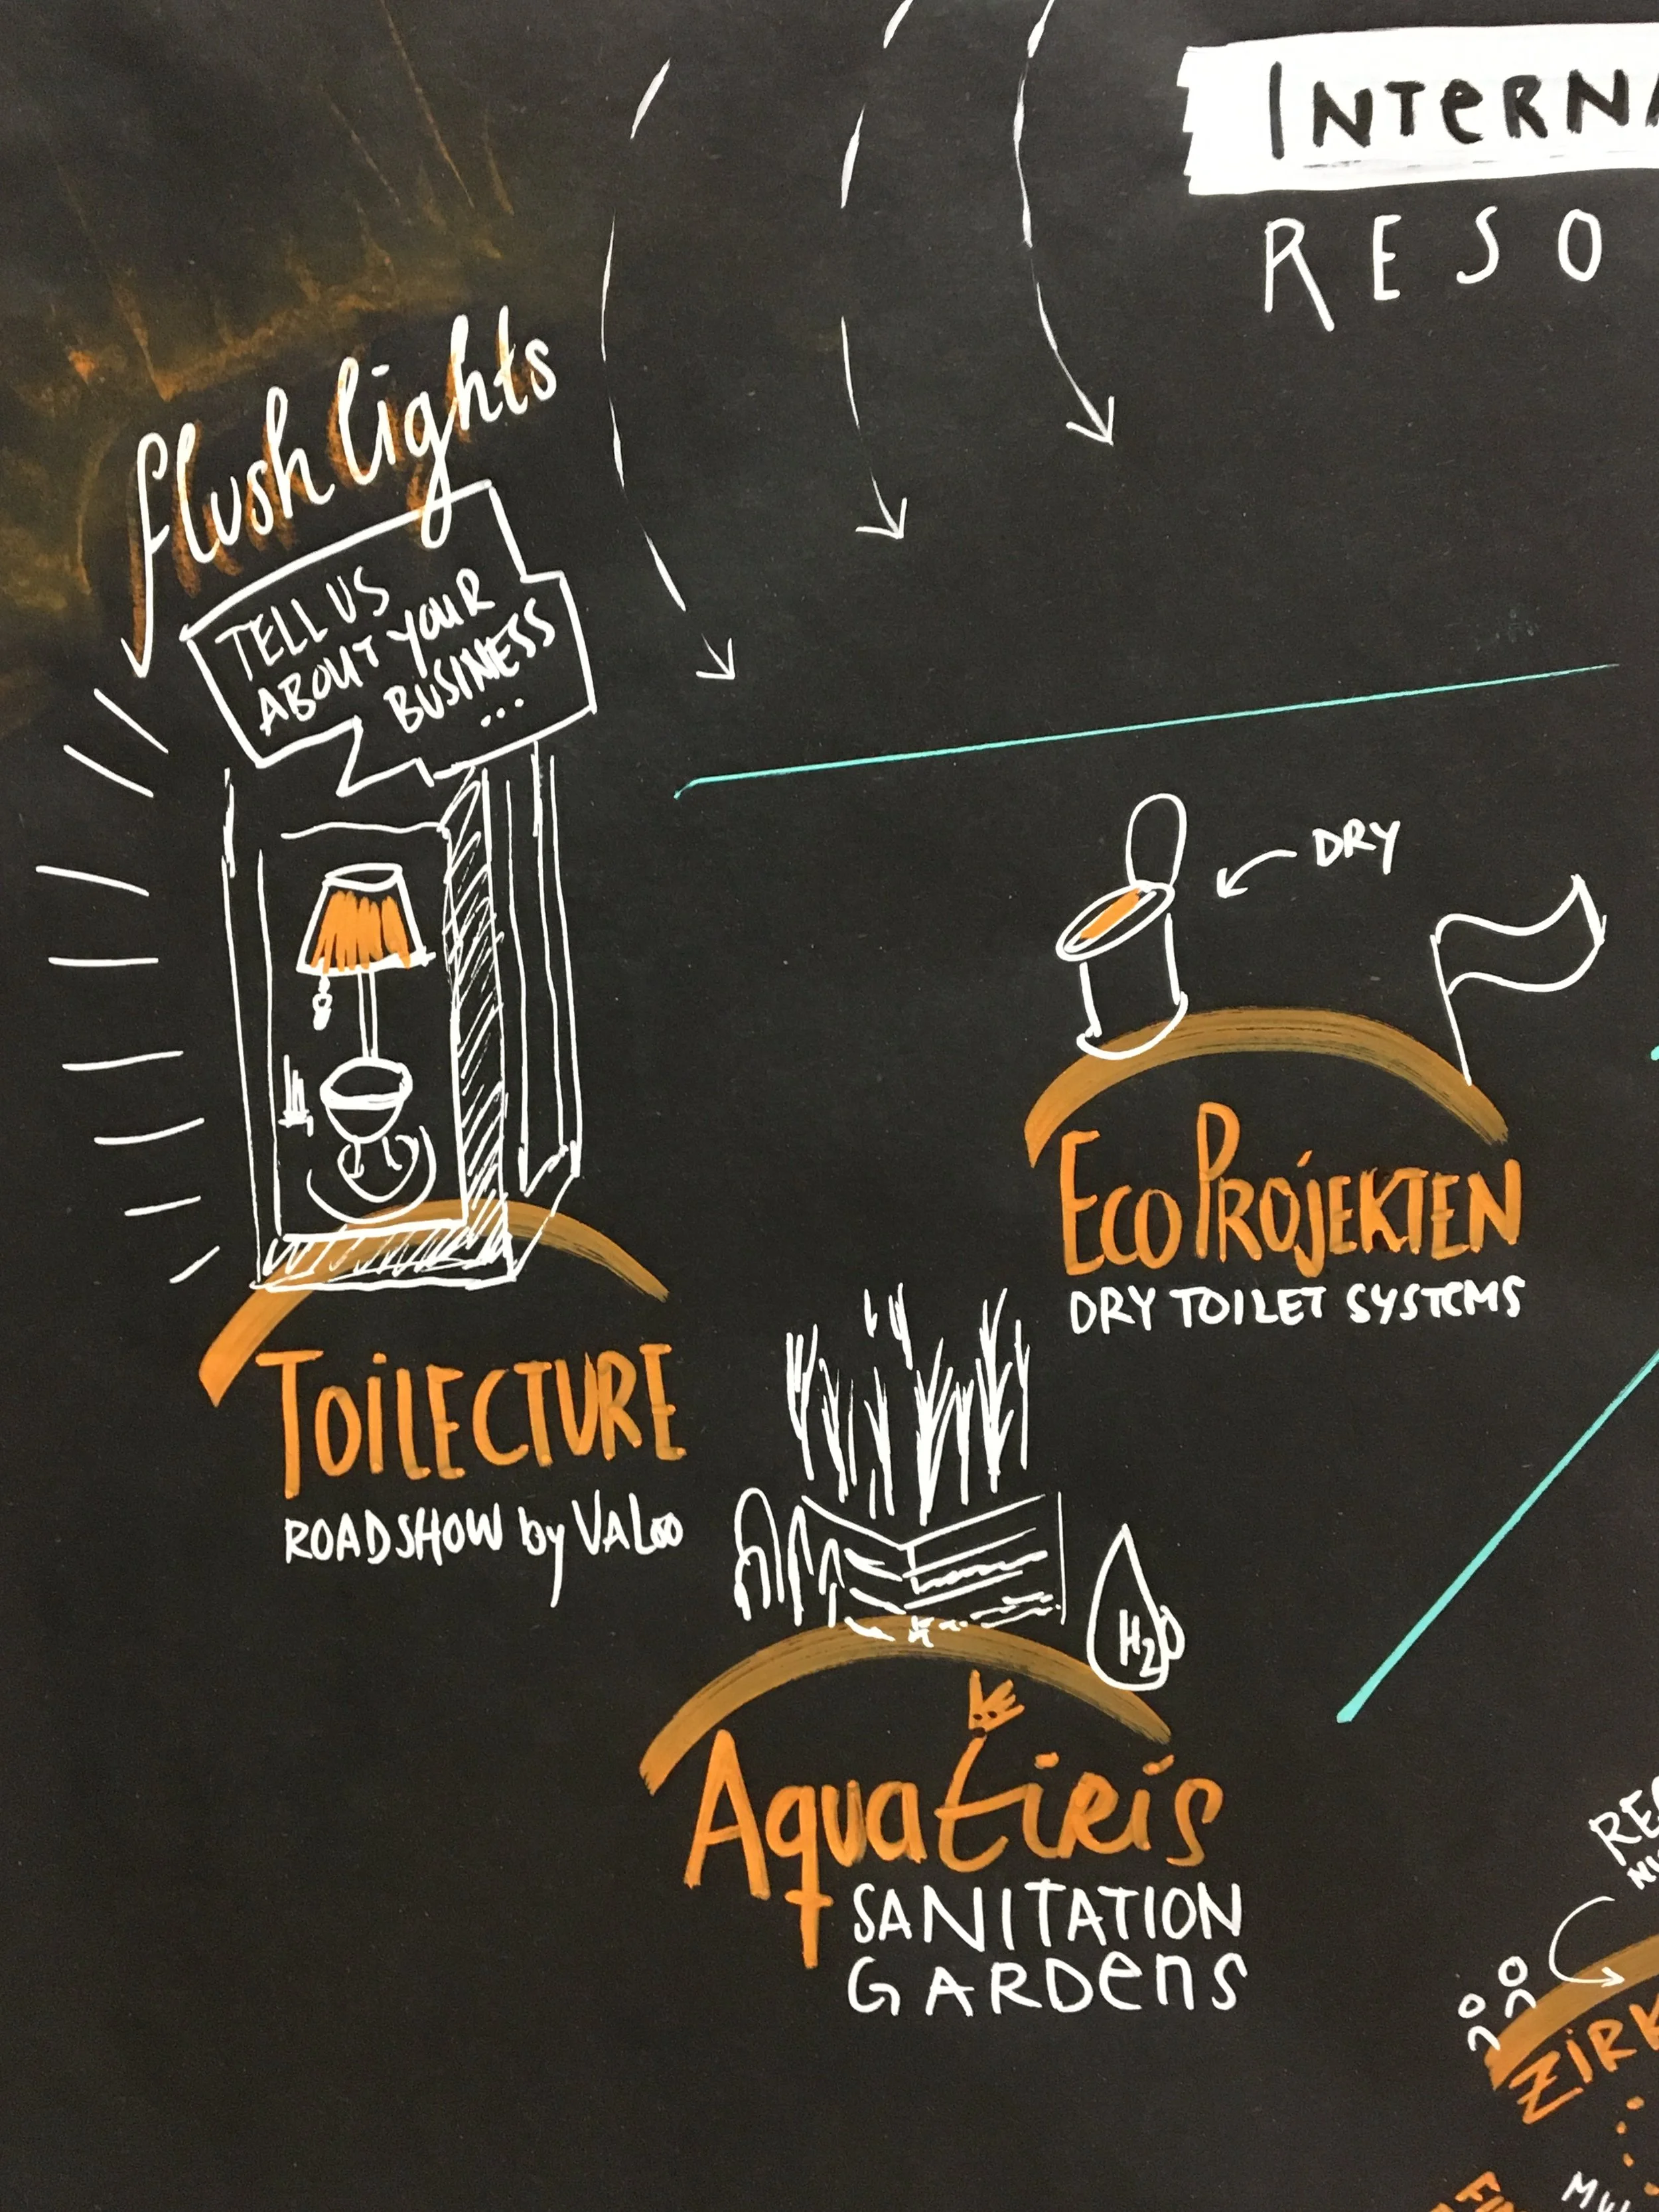 INTERNA
RESO
flush lights
TELL US
ABOUT YOUR
BUSINESS
...
DRY
ECOPROJEKTEN
DRY TOILET SYSTEMS
TOILECTURE
ROADSHOW by VALOO
H2O
AquaTiris
SANITATION
GARDENS
RE
ZIRK